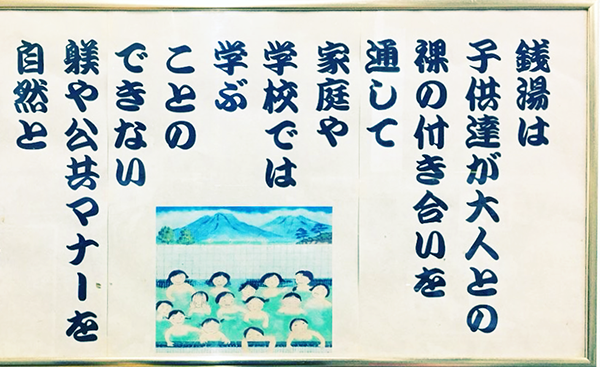 銭湯は
子供達が大人との
裸の付き合いを
通して
家庭や
学校では
学ぶ
ことの
できない
躾や公共マナーを
自然と